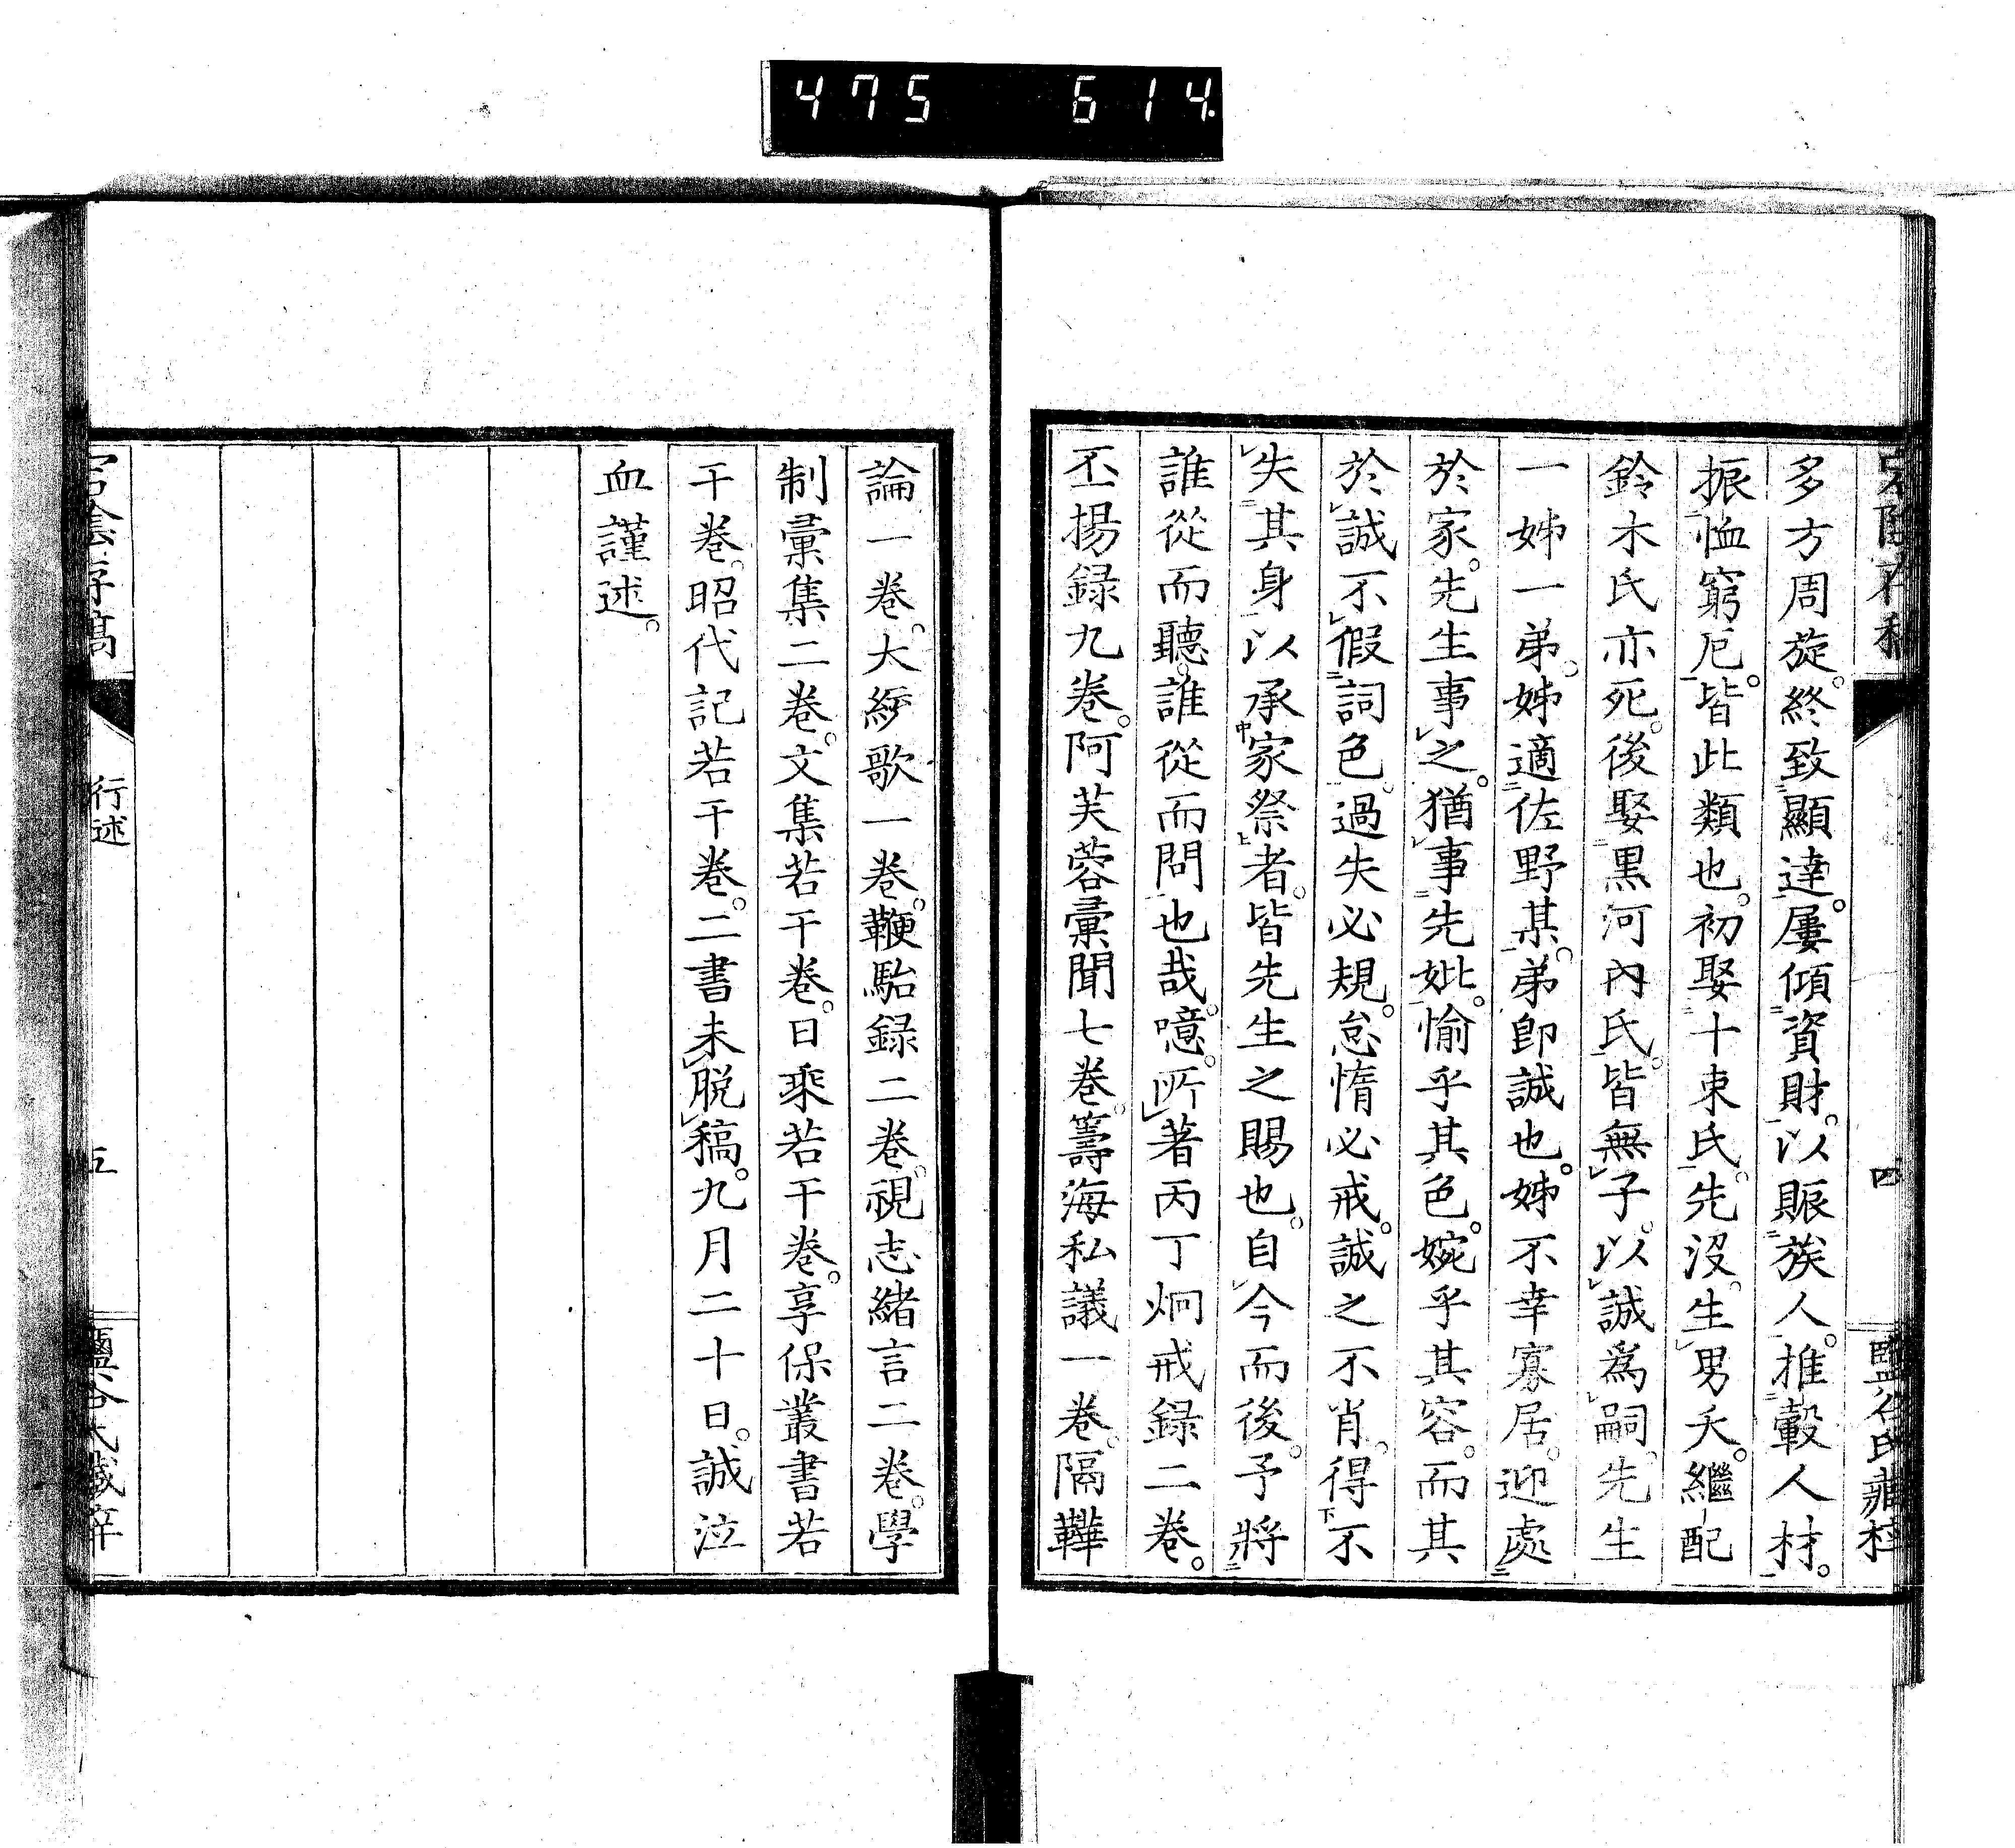 475 614
多方周旋。終致顯達。屢傾資財。以賑族人。推轂人材。
振恤窮厄。皆此類也。初娶十束氏。先沒。生男夭。繼配
鈴木氏亦死。後娶黒河內氏。皆無子。以誠爲嗣。先生
一姊一弟。姊適佐野某。弟卽誠也。姊不幸寡居。迎處
於家。先生事之。猶事先妣。愉乎其色。婉乎其容。而其
於誠不假詞色。過失必規。怠惰必戒。誠之不肖。得不
失其身以承家祭者。皆先生之賜也。自今而後。予將
誰從而聽。誰從而問也哉。噫。所著丙丁炯戒録二卷。
丕揚録九卷。阿芙蓉彙聞七卷。籌海私議一卷。隔鞾
四
論一卷。大統歌一卷。鞭駘録二卷。視志緒言二卷。學
制彙集二卷。文集若干卷。日乘若干卷。享保叢書若
干卷。昭代記若干卷。二書未脱稿。九月二十日。誠泣
血謹述。
行述
五